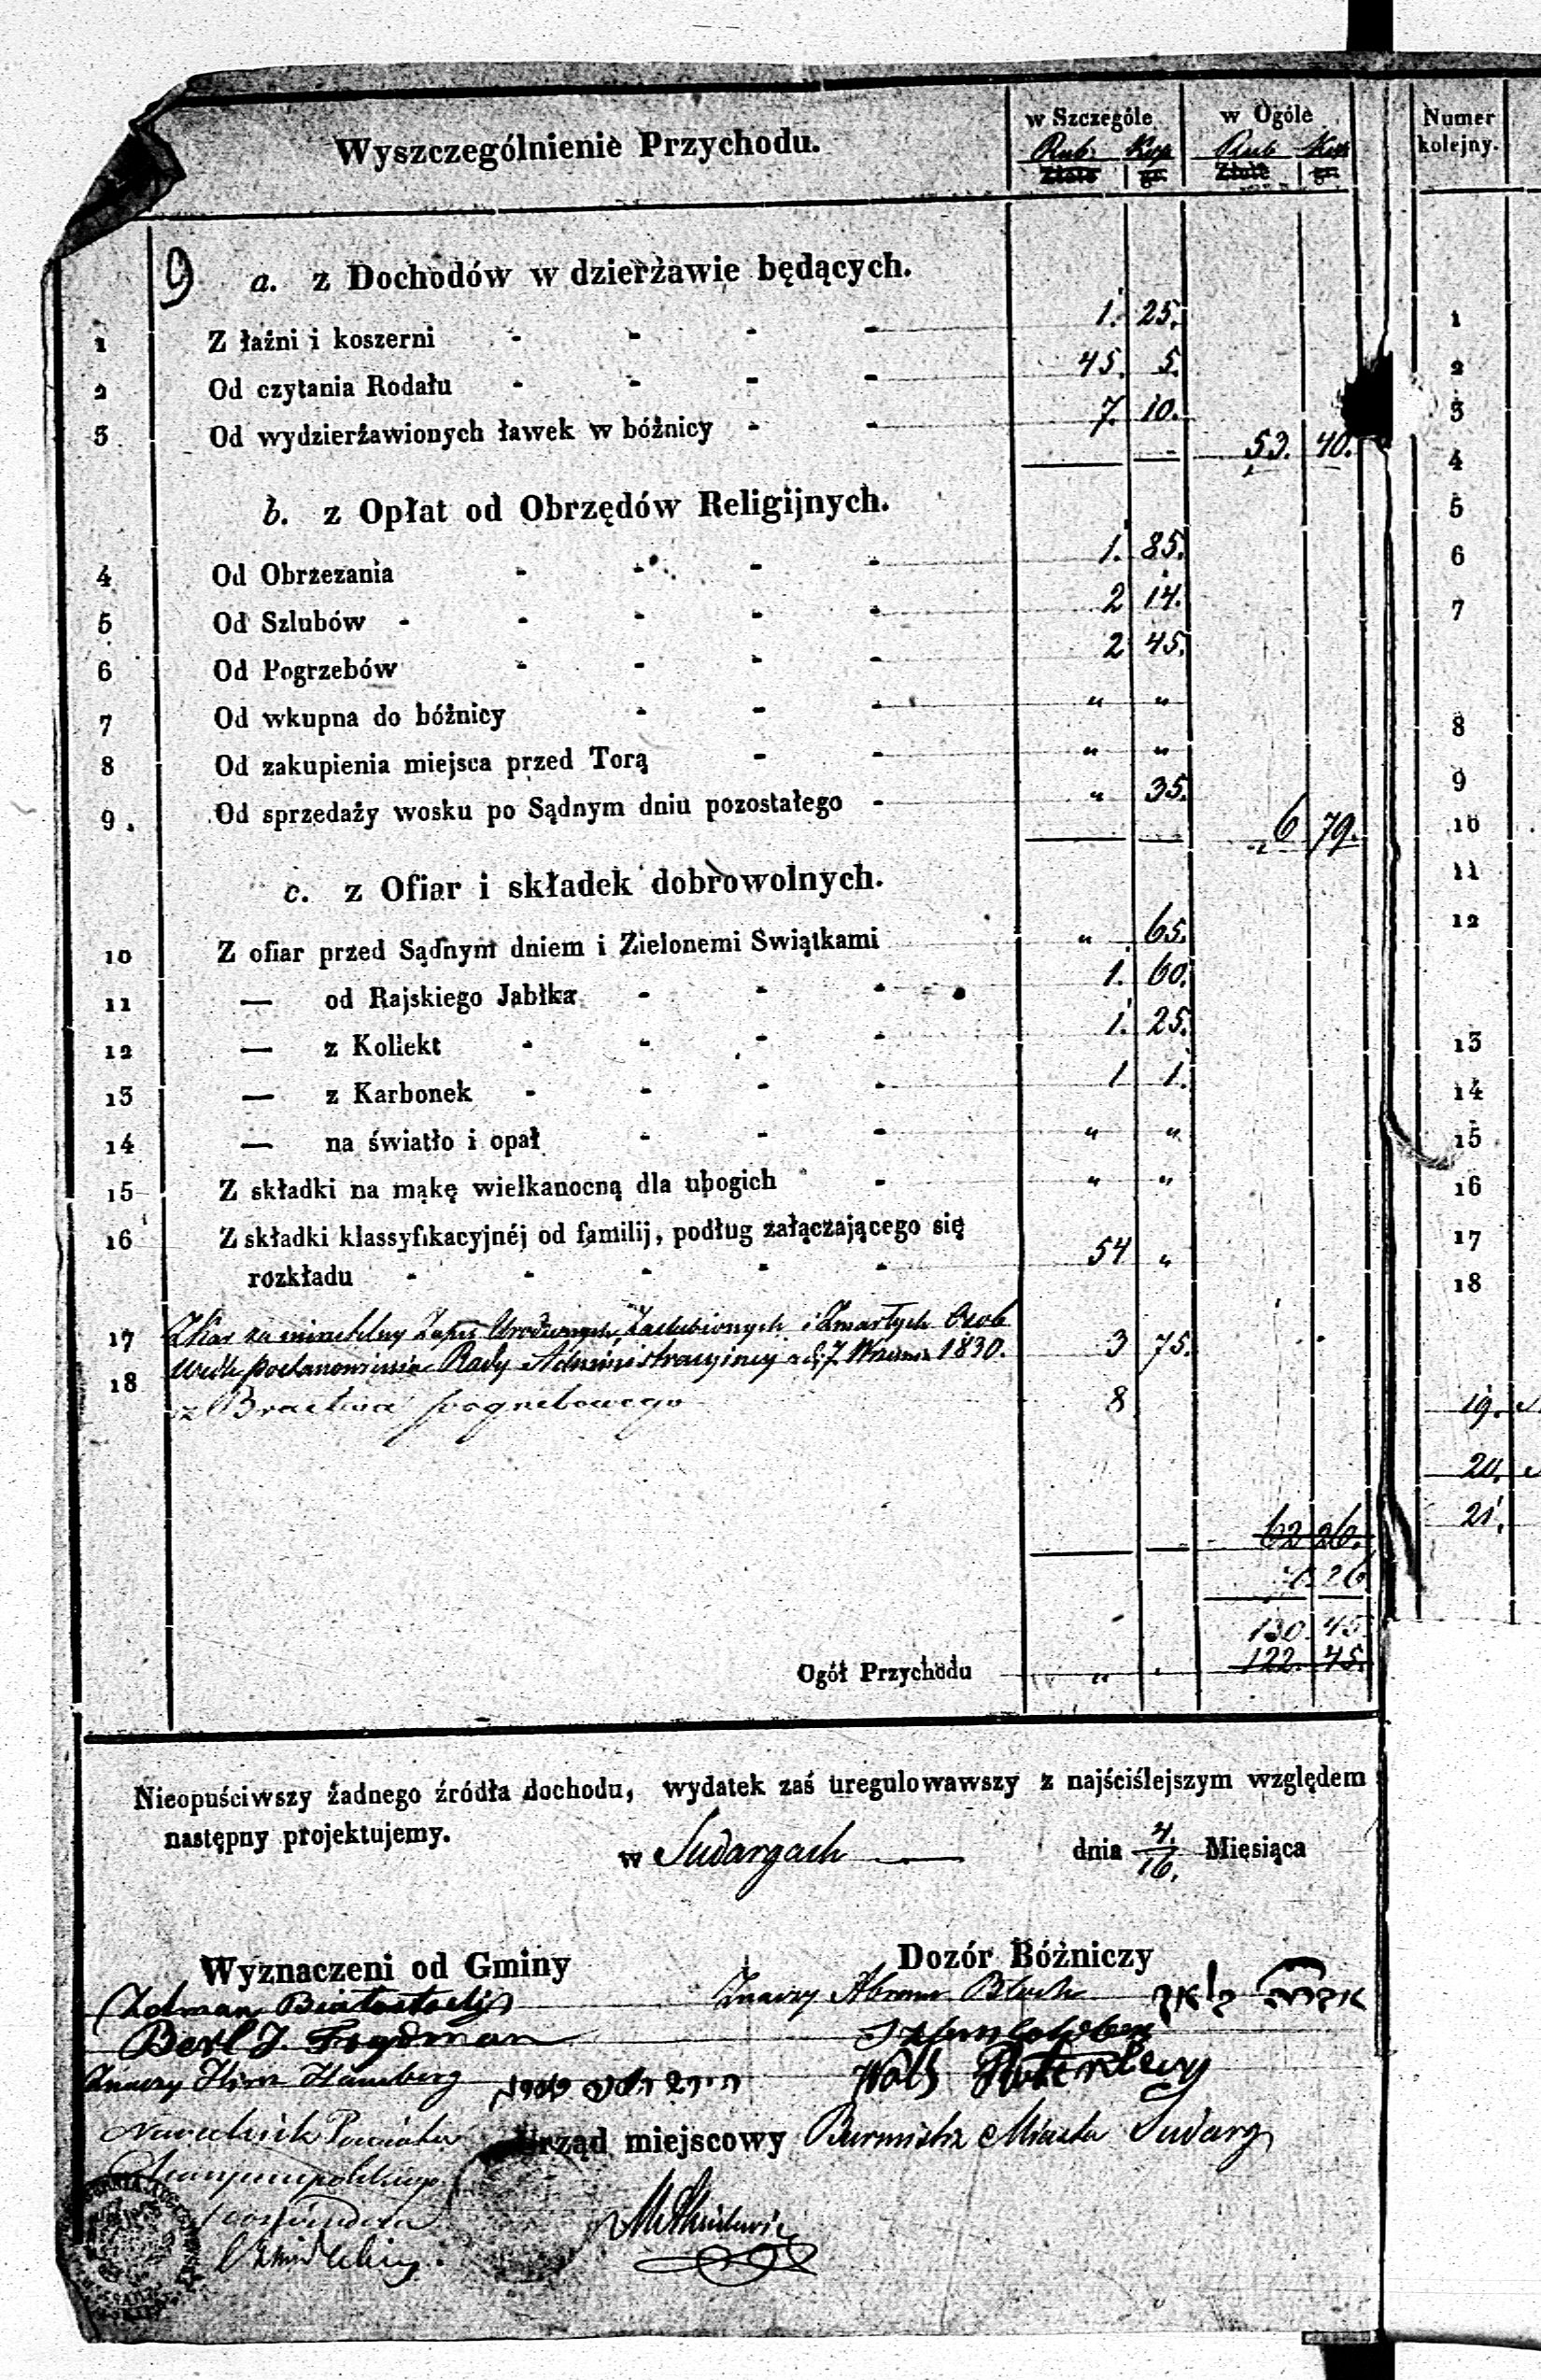 Wyszczególnienie Przychodu.
w Szczególe w Ogóle
Rub Kop Rub Kop
Złote gr. Złote gr.
Numer kolejny.
9 a. z Dochodów w dzierżawie będących.
1 Z łaźni i koszerni - - - - 1. 25. 1
2 Od czytania Rodału - - - - 45. 5. 2
3 Od wydzierżawionych ławek w bóźnicy - - 7. 10. 3
53. 40. 4
b. z Opłat od Obrzędów Religijnych. 5
4 Od Obrzezania - - - - 1. 85. 6
5 Od Szlubów - - - - - 2 14. 7
6 Od Pogrzebów - - - - 2 45.
7 Od wkupna do bóźnicy - - - " " 8
8 Od zakupienia miejsca przed Torą - - " " 9
9. Od sprzedaży wosku po Sądnym dniu pozostałego - " 35. 10
6 79.
c. z Ofiar i składek dobrowolnych. 11
10 Z ofiar przed Sądnym dniem i Zielonemi Swiątkami " 65. 12
11 — od Rajskiego Jabłka - - - 1. 60.
12 — z Kollekt - - - - 1. 25. 13
13 — z Karbonek - - - - 1 1. 14
14 — na światło i opał - - - " " 15
15 Z składki na mąkę wielkanocną dla ubogich - " " 16
16 Z składki klassyfikacyjnéj od familij, podług załączającego się 17
rozkładu - - - - - 54 " 18
17 Z Kar za Zapis Urodzonych, Zaślubionych i Zmartych Osob
wedle postanowienia Rady Administracyjney z d. 7 Września 1830. 3 75.
18 z Bractwa pogrzebowego 8 19.
20.
21.
62 26.
26
130. 45.
Ogół Przychodu " 122. 45.
Nieopuściwszy żadnego źródła dochodu, wydatek zaś uregulowawszy z najściślejszym względem
następny projektujemy.
w Sudargach dnia 4/16. Miesiąca
Wyznaczeni od Gminy Dozór Bóźniczy
Zelman Białostocki Znaczy Abram Bloch
Berl J. Frydman
Znaczy
Naczelnik Powiatu Urząd miejscowy Burmistrz Miasta Sudarg